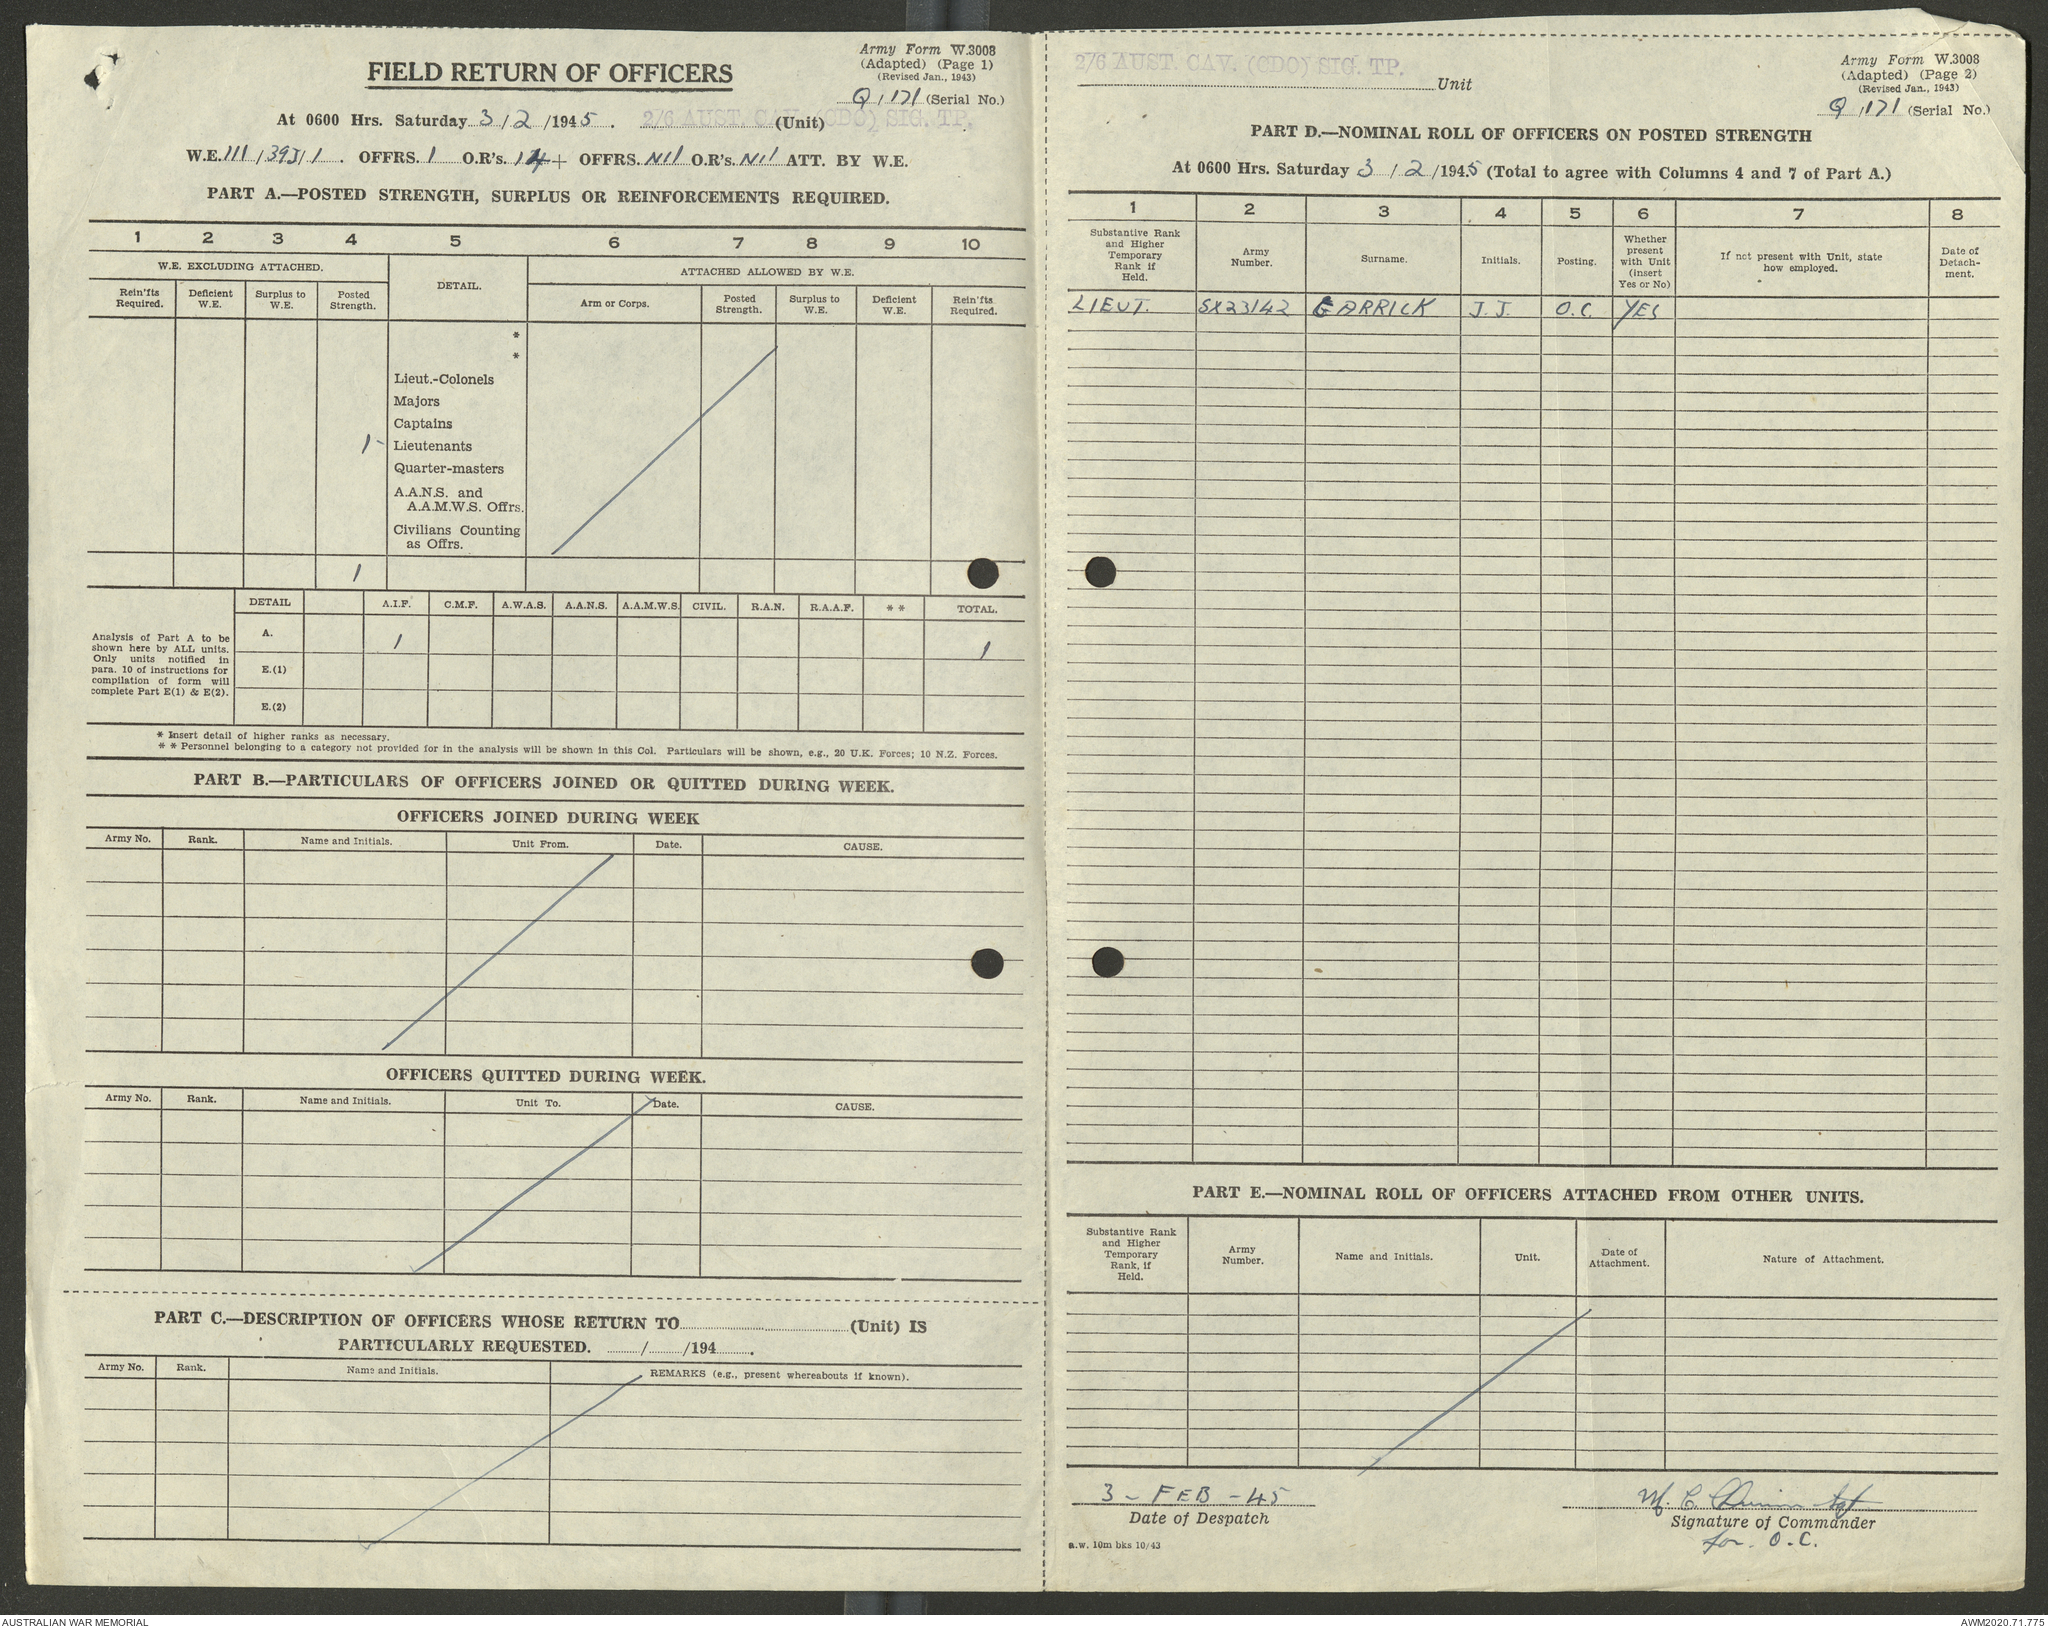 Army Form W.3008
(Adapted) (Page 1)
(Revised Jan., 1943)
FIELD RETURN OF OFFICERS
Q/171 (Serial No.)
At 0600 Hrs. Saturday 3/2/1945. 2/6 AUST. CAV. (CDO) SIG. TP. (Unit)
W.E. III/39J/1. OFFRS. 1 O.R's. 14 OFFRS. Nil O.R's. Nil ATT. BY W.E.
PART A.—POSTED STRENGTH, SURPLUS OR REINFORCEMENTS REQUIRED.
1 2 3 4 5 6 7 8 9 10
W.E. EXCLUDING ATTACHED. DETAIL. ATTACHED ALLOWED BY W.E.
Rein'fts Required. Deficient W.E. Surplus to W.E. Posted Strength. Arm or Corps. Posted Strength. Surplus to W.E. Deficient W.E. Rein'fts Required.
*
*
Lieut.-Colonels
Majors
Captains
1 - Lieutenants
Quarter-masters
A.A.N.S. and
A.A.M.W.S. Offrs.
Civilians Counting
as Offrs.
1
DETAIL A.I.F. C.M.F. A.W.A.S. A.A.N.S. A.A.M.W.S. CIVIL. R.A.N. R.A.A.F. * * TOTAL.
Analysis of Part A to be
shown here by ALL units.
Only units notified in
para. 10 of instructions for
compilation of form will
complete Part E(1) & E(2).
A. 1 1
E.(1)
E.(2)
* Insert detail of higher ranks as necessary.
* * Personnel belonging to a category not provided for in the analysis will be shown in this Col. Particulars will be shown, e.g., 20 U.K. Forces; 10 N.Z. Forces.
PART B.—PARTICULARS OF OFFICERS JOINED OR QUITTED DURING WEEK.
OFFICERS JOINED DURING WEEK
Army No. Rank. Name and Initials. Unit From. Date. CAUSE.
OFFICERS QUITTED DURING WEEK.
Army No. Rank. Name and Initials. Unit To. Date. CAUSE.
PART C.—DESCRIPTION OF OFFICERS WHOSE RETURN TO (Unit) IS
PARTICULARLY REQUESTED. / /194 .
Army No. Rank. Name and Initials. REMARKS (e.g., present whereabouts if known).
2/6 AUST. CAV. (CDO) SIG. TP. Unit
Army Form W.3008
(Adapted) (Page 2)
(Revised Jan., 1943)
Q/171 (Serial No.)
PART D.—NOMINAL ROLL OF OFFICERS ON POSTED STRENGTH
At 0600 Hrs. Saturday 3/2/1945 (Total to agree with Columns 4 and 7 of Part A.)
1 2 3 4 5 6 7 8
Substantive Rank and Higher Temporary Rank if Held. Army Number. Surname. Initials. Posting. Whether present with Unit (insert Yes or No) If not present with Unit, state how employed. Date of Detach-ment.
LIEUT. SX23142 GARRICK J.J. O.C. YES
PART E.—NOMINAL ROLL OF OFFICERS ATTACHED FROM OTHER UNITS.
Substantive Rank and Higher Temporary Rank, if Held. Army Number. Name and Initials. Unit. Date of Attachment. Nature of Attachment.
3 - FEB - 45
Date of Despatch
Sgt
Signature of Commander
for O.C.
a.w. 10m bks 10/43
AUSTRALIAN WAR MEMORIAL
AWM2020.71.775